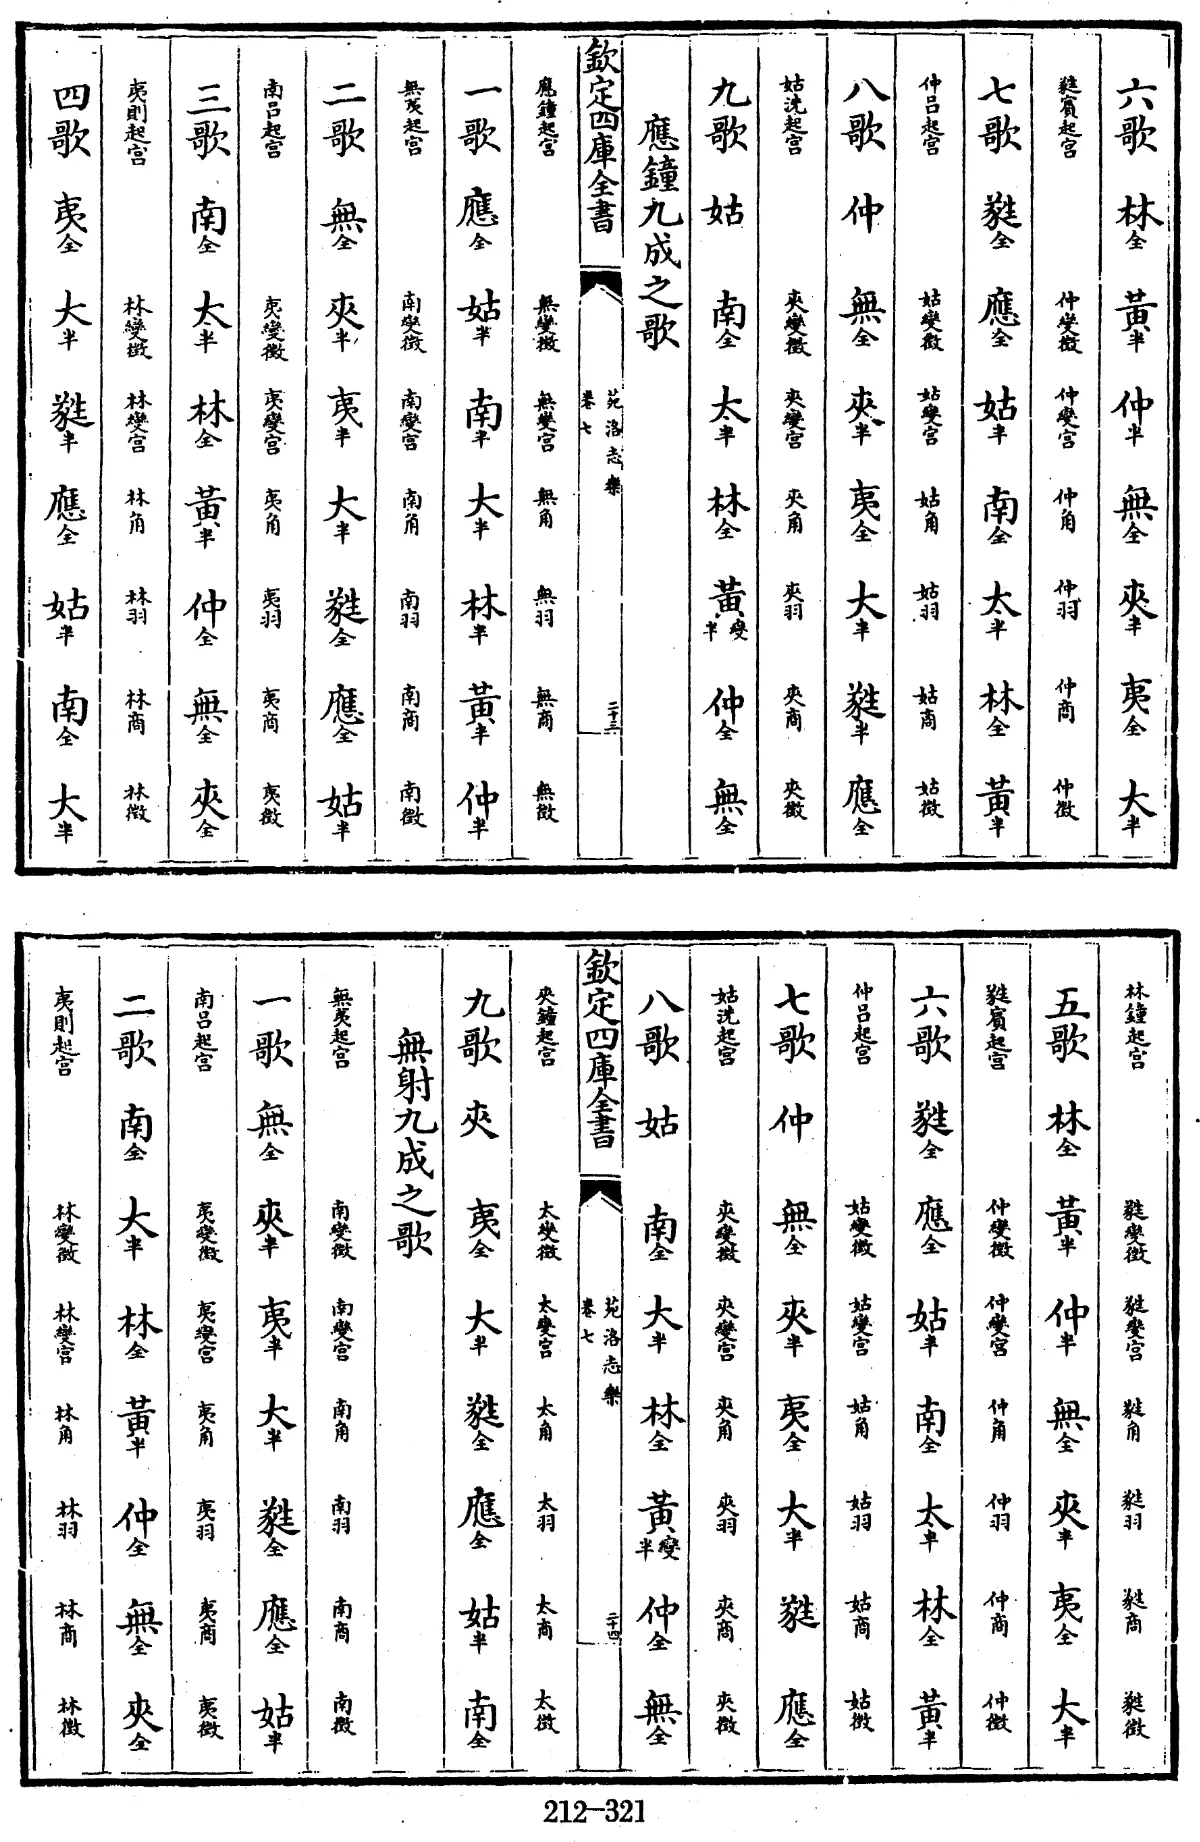 六歌 林全 黃半 仲半 無全 夾半 夷全 大半
蕤賓起宫 仲變徵 仲變宫 仲角 仲羽 仲商 仲徵
七歌 蕤全 應全 姑半 南全 太半 林全 黃半
仲吕起宫 姑變徵 姑變宫 姑角 姑羽 姑商 姑徵
八歌 仲 無全 夾半 夷全 大半 蕤半 應全
姑洗起宫 夾變徵 夾變宫 夾角 夾羽 夾商 夾徵
九歌 姑 南全 太半 林全 黃變半 仲全 無全
應鐘九成之歌
欽定四庫全書 苑洛志樂 卷七 二十三
應鐘起宫 無變徵 無變宫 無角 無羽 無商 無徵
一歌 應全 姑半 南半 大半 林半 黃半 仲半
無射起宫 南變徵 南變宫 南角 南羽 南商 南徵
二歌 無全 夾半 夷半 大半 蕤全 應全 姑半
南吕起宫 夷變徵 夷變宫 夷角 夷羽 夷商 夷徵
三歌 南全 太半 林全 黃半 仲全 無全 夾全
夷則起宫 林變徵 林變宫 林角 林羽 林商 林徵
四歌 夷全 大半 蕤半 應全 姑半 南全 大半
林鐘起宫 蕤變徵 蕤變宫 蕤角 蕤羽 蕤商 蕤徵
五歌 林全 黃半 仲半 無全 夾半 夷全 大半
蕤賓起宫 仲變徵 仲變宫 仲角 仲羽 仲商 仲徵
六歌 蕤全 應全 姑半 南全 太半 林全 黃半
仲吕起宫 姑變徵 姑變宫 姑角 姑羽 姑商 姑徵
七歌 仲 無全 夾半 夷全 大半 蕤 應全
姑洗起宫 夾變徵 夾變宫 夾角 夾羽 夾商 夾徵
八歌 姑 南全 大半 林全 黃變半 仲全 無全
欽定四庫全書 苑洛志樂 卷七 二十四
夾鐘起宫 太變徵 太變宫 太角 太羽 太商 太徵
九歌 夾 夷全 大半 蕤全 應全 姑半 南全
無射九成之歌
無射起宫 南變徵 南變宫 南角 南羽 南商 南徵
一歌 無全 夾半 夷半 大半 蕤全 應全 姑半
南吕起宫 夷變徵 夷變宫 夷角 夷羽 夷商 夷徵
二歌 南全 大半 林全 黃半 仲全 無全 夾全
夷則起宫 林變徵 林變宫 林角 林羽 林商 林徵
212-321